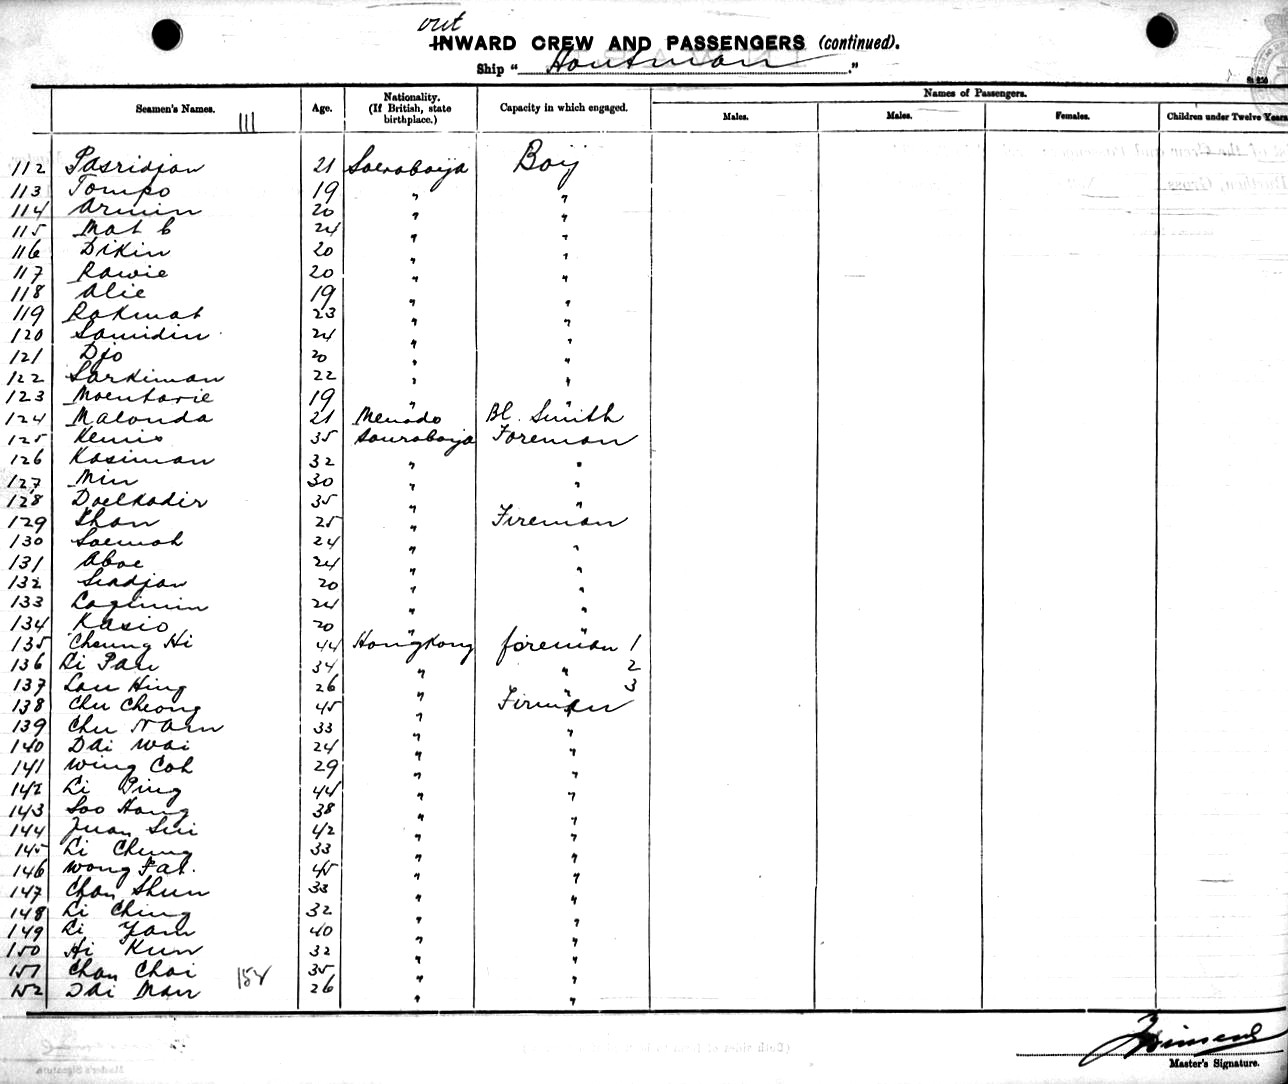 out
INWARD CREW AND PASSENGERS (continued).
Ship "Houtman."
Seamen's Names. Age. Nationality. (If British, state birthplace.) Capacity in which engaged. Names of Passengers.
Males. Males. Females. Children under Twelve Years
111
112 Pasridjan 21 Soerabaija Boy
113 Tompo 19 " "
114 Armin 20 " "
115 Mat 6 24 " "
116 Dikin 20 " "
117 Rawie 20 " "
118 Alie 19 " "
119 Rakmat 23 " "
120 Samidin 24 " "
121 Djo 20 " "
122 Sarkiman 22 " "
123 Moentarie 19 "
124 Malonda 21 Menado Bl. Smith
125 Kemis 35 Sourabaija Foreman
126 Kasiman 32 " "
127 Min 30 " "
128 Doelkadir 35 " "
129 25 " Fireman
130 Saemah 24 " "
131 Aboe 24 " "
132 Siadjan 20 " "
133 Lagimin 24 " "
134 Kasio 20 " "
135 Cheung Hi 44 Hongkong foreman 1
136 Li Pau 34 " " 2
137 Lau Hing 26 " " 3
138 Chu Cheong 45 " Fireman
139 Chu Nam 33 " "
140 Dai Wai 24 " "
141 Wing Coh 29 " "
142 Li Ping 44 " "
143 Soo Hang 38 " "
144 Juan Sui 42 " "
145 Li Chung 33 " "
146 Wong Fat. 45 " "
147 Chan Shun 33 " "
148 Li Ching 32 " "
149 Li Yam 40 " "
150 Hi Kun 32 " "
151 Chan Choi 35 " "
152 Dai Man 26 " "
Master's Signature.